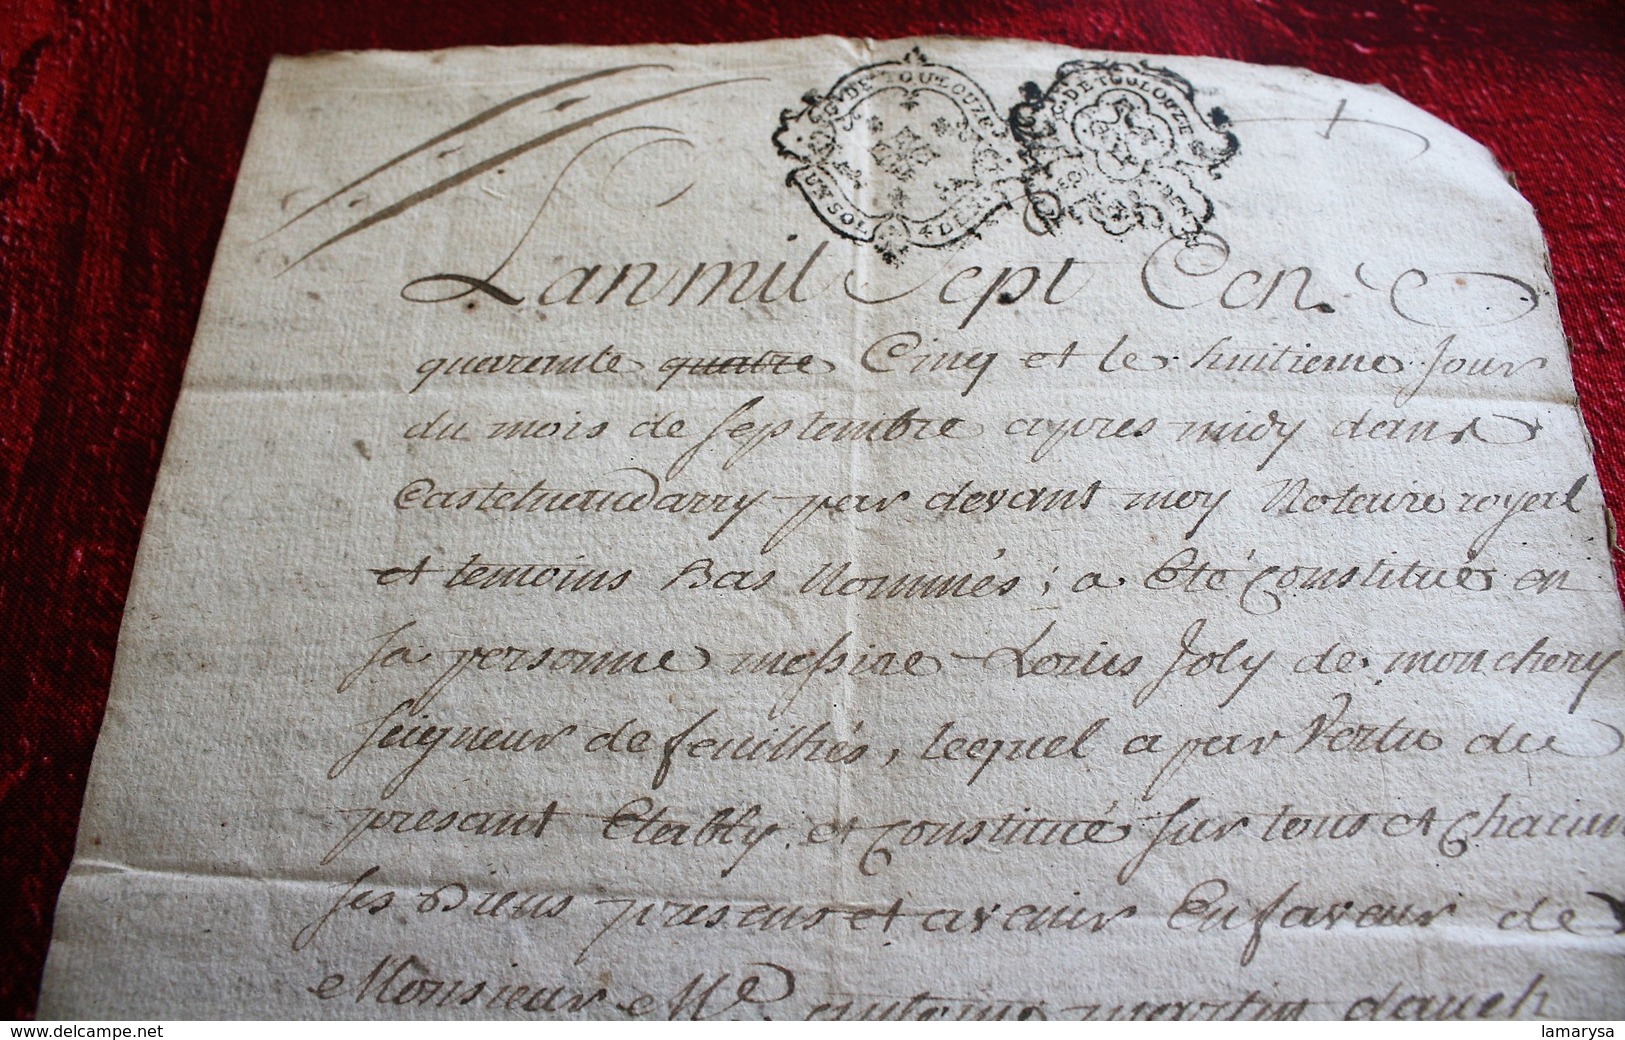 G. DE TOULOUZE
UN SOL 4 DEN
G. DE TOULOUZE
DEN
Lan mil Sept Cen
quarente quatre Cinq et le huitieme Jour
du mois de septembre apres midy dans
Castelnaudarry par devant moy Notaire royal
et temoins Bas Nommés; a Eté constitué en
sa personne messire Louis Joly de monchery
seigneur de feuilhés, lequel a par Vertu du
presant Etably et constitué sur tous et chacuns
ses Biens presens et avenir En faveur de
Monsieur Me. antoine martin dauch
www.delcampe.net
lamarysa